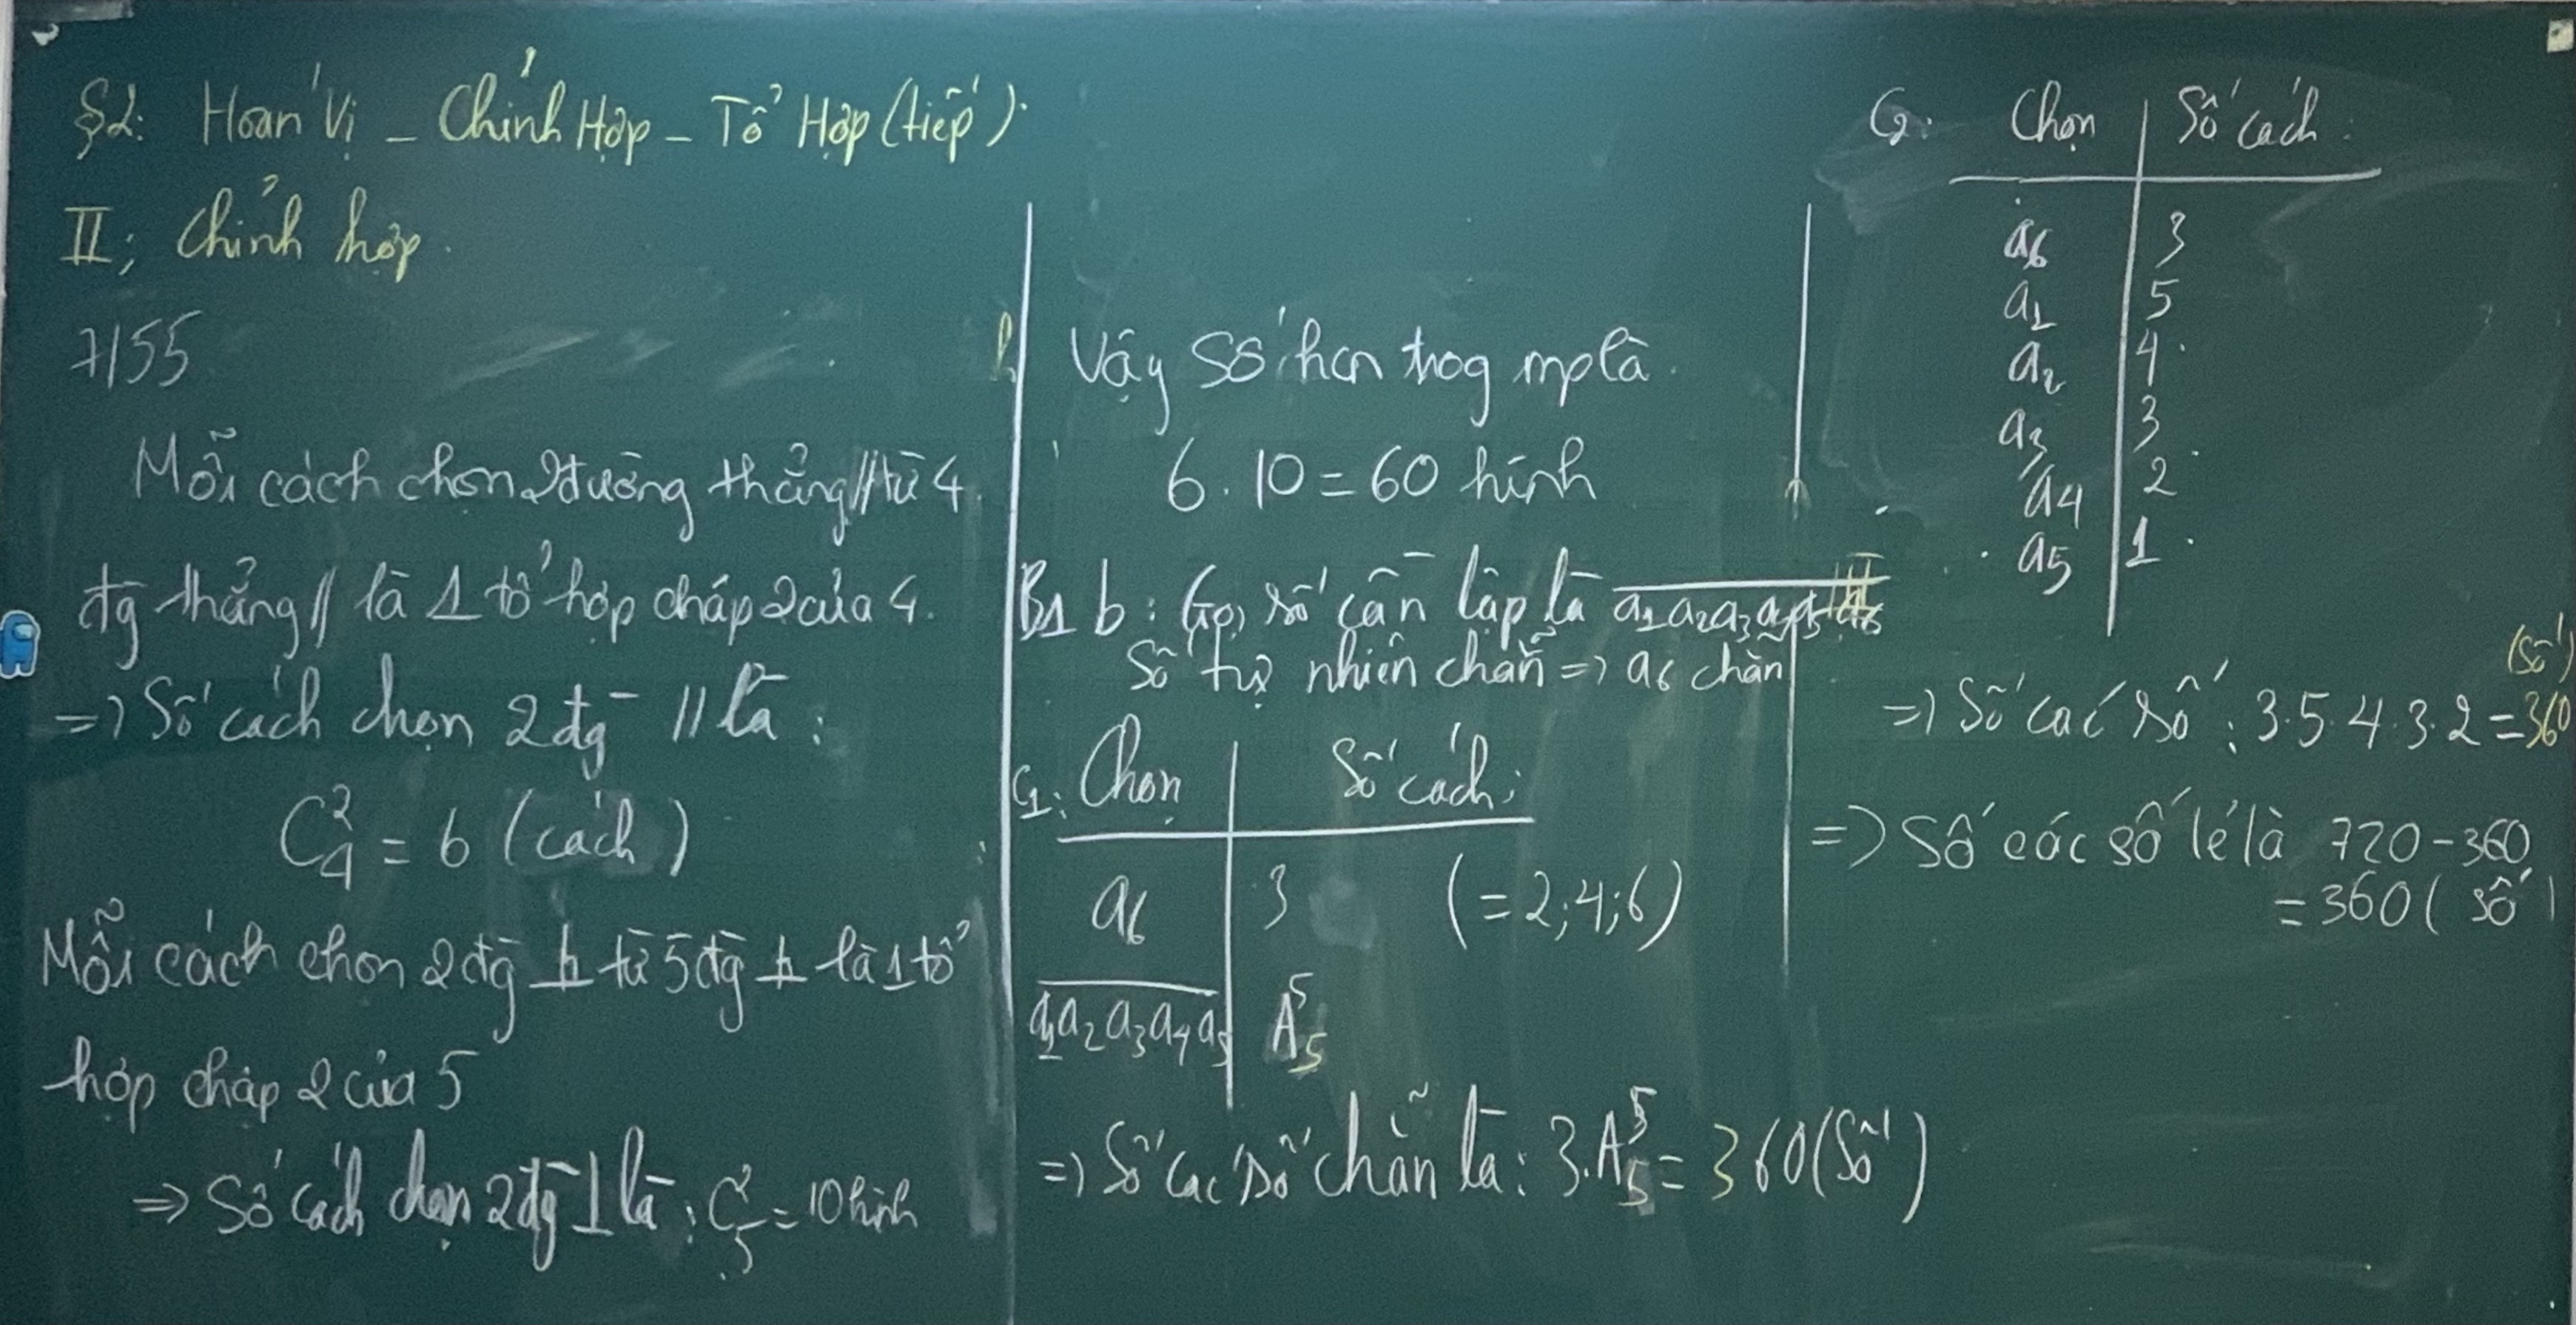 §2: Hoán Vị - Chỉnh Hợp - Tổ Hợp (tiếp).
II; Chỉnh hợp.
7/55
Mỗi cách chọn 2 đường thẳng // từ 4
đg thẳng // là 1 tổ hợp chập 2 của 4.
=> Số cách chọn 2 đg // là :
C²₄ = 6 (cách)
Mỗi cách chọn 2 đg ⊥ từ 5 đg ⊥ là 1 tổ
hợp chập 2 của 5
=> Số cách chọn 2 đg ⊥ là : C²₅ = 10 hình
Vậy số hcn trog mp là
6 . 10 = 60 hình
B1 b : Gọi số cần lập là a₁a₂a₃a₄a₅a₆
Số tự nhiên chẵn => a₆ chẵn
C₁: Chọn | Số cách:
a₆ | 3 (= 2; 4; 6)
a₁a₂a₃a₄a₅ | A⁵₅
=> Số các số chẵn là : 3.A⁵₅ = 360 (Số)
C₂: Chọn | Số cách:
a₆ | 3
a₁ | 5
a₂ | 4
a₃ | 3
a₄ | 2
a₅ | 1
=> Số các số : 3.5.4.3.2 = 360 (số)
=> Số các số lẻ là 720 - 360
= 360 ( số )